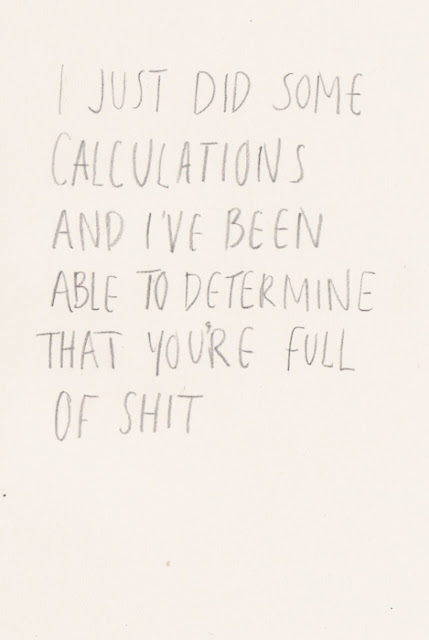 I JUST DID SOME
CALCULATIONS
AND I'VE BEEN
ABLE TO DETERMINE
THAT YOU'RE FULL
OF SHIT